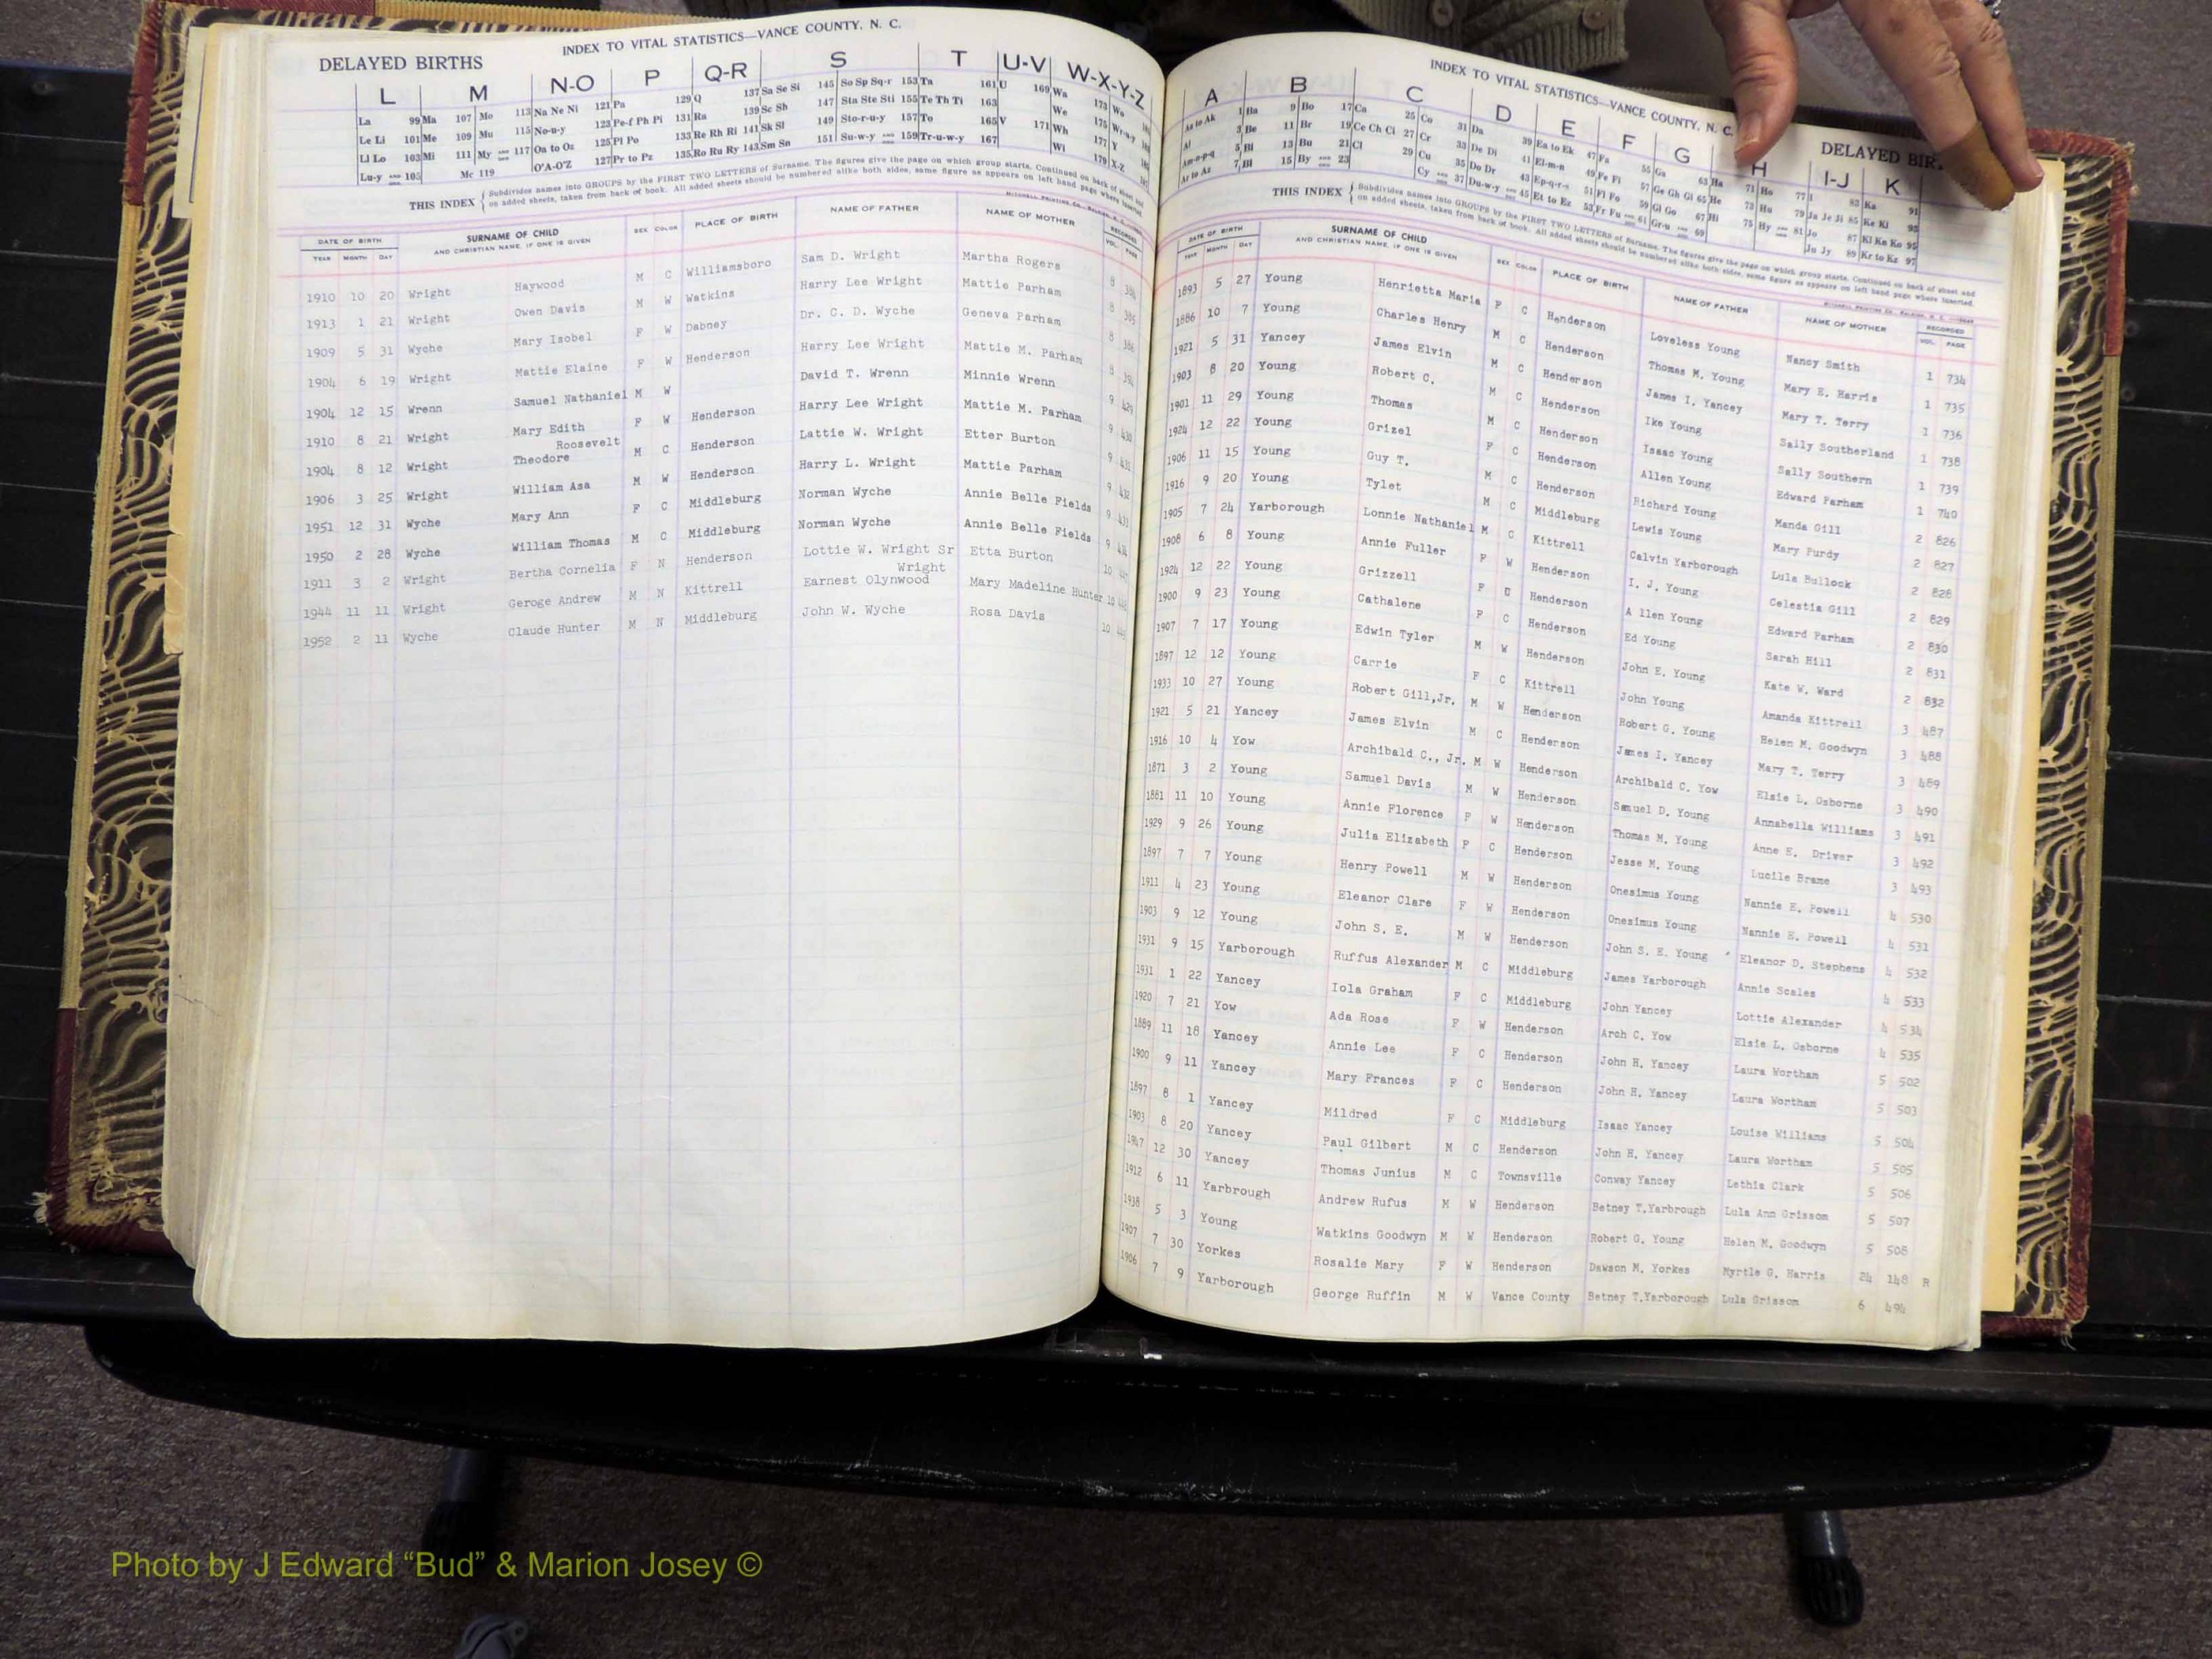 INDEX TO VITAL STATISTICS—VANCE COUNTY, N. C.
DELAYED BIRTHS
L M N-O P Q-R S T U-V W-X-Y-Z
La 99 Ma 107 Mo 113 Na Ne Ni 121 Pa 129 Q 137 Sa Se Si 145 So Sp Sq-r 153 Ta 161 U 169 Wa 173 Wo
Le Li 101 Me 109 Mu 115 No-u-y 123 Pe-f Ph Pi 131 Ra 139 Sc Sh 147 Sta Ste Sti 155 Te Th Ti 163 We 175 Wr-w-y
Ll Lo 103 Mi 111 My AND 117 Oa to Oz 125 Pl Po 133 Re Rh Ri 141 Sk Sl 149 Sto-r-u-y 157 To 165 V 171 Wh 177 Y
Lu-y 105 Mc 119 O'A-O'Z 127 Pr to Pz 135 Ro Ru Ry 143 Sm Sn 151 Su-w-y 159 Tr-u-w-y 167 Wi 179 X-Z
THIS INDEX { Subdivides names into GROUPS by the FIRST TWO LETTERS of Surname. The figures give the page on which group starts. Continued on back of sheet and
on added sheets, taken from back of book. All added sheets should be numbered alike both sides, same figure as appears on left hand page where inserted.
MITCHELL PRINTING CO., RALEIGH, N. C.
DATE OF BIRTH SURNAME OF CHILD SEX COLOR PLACE OF BIRTH NAME OF FATHER NAME OF MOTHER RECORDED
YEAR MONTH DAY AND CHRISTIAN NAME, IF ONE IS GIVEN VOL. PAGE
1910 10 20 Wright Haywood M C Williamsboro Sam D. Wright Martha Rogers 8
1913 1 21 Wright Owen Davis M W Watkins Harry Lee Wright Mattie Parham 8 385
1909 5 31 Wyche Mary Isobel F W Dabney Dr. C. D. Wyche Geneva Parham 8 386
1904 6 19 Wright Mattie Elaine F W Henderson Harry Lee Wright Mattie M. Parham 8
1904 12 15 Wrenn Samuel Nathaniel M W David T. Wrenn Minnie Wrenn 9 429
1910 8 21 Wright Mary Edith F W Henderson Harry Lee Wright Mattie M. Parham 9 430
1904 8 12 Wright Theodore Roosevelt M C Henderson Lattie W. Wright Etter Burton 9 431
1906 3 25 Wright William Asa M W Henderson Harry L. Wright Mattie Parham 9 432
1951 12 31 Wyche Mary Ann F C Middleburg Norman Wyche Annie Belle Fields 9 433
1950 2 28 Wyche William Thomas M C Middleburg Norman Wyche Annie Belle Fields 9 434
1911 3 2 Wright Bertha Cornelia F N Henderson Lottie W. Wright Sr Etta Burton 10
1944 11 11 Wright Geroge Andrew M N Kittrell Earnest Olynwood Wright Mary Madeline Hunter 10
1952 2 11 Wyche Claude Hunter M N Middleburg John W. Wyche Rosa Davis 10
INDEX TO VITAL STATISTICS—VANCE COUNTY, N. C.
DELAYED BIR
A B C D E F G H I-J K
Aa to Ak 1 Ba 9 Bo 17 Ca 25 Co 31 Da 39 Ea to Ek 47 Fa 55 Ga 63 Ha 71 Ho 77 I 83 Ka 91
Al 3 Be 11 Br 19 Ce Ch Ci 27 Cr 33 De Di 41 El-m-n 49 Fe Fi 57 Ge Gh Gi 65 He 73 Hu 79 Ja Je Ji 85 Ke Ki 93
Am-n-p-q 5 Bi 13 Bu 21 Cl 29 Cu 35 Do Dr 43 Ep-q-r-s 51 Fl Fo 59 Gl Go 67 Hi 75 Hy 81 Jo 87 Kl Kn Ko 95
Ar to Az 7 Bl 15 By 23 Cy 37 Du-w-y 45 Et to Ez 53 Fr Fu 61 Gr-u 69 Ju Jy 89 Kr to Kz 97
THIS INDEX { Subdivides names into GROUPS by the FIRST TWO LETTERS of Surname. The figures give the page on which group starts. Continued on back of sheet and
on added sheets, taken from back of book. All added sheets should be numbered alike both sides, same figure as appears on left hand page where inserted.
MITCHELL PRINTING CO., RALEIGH, N. C.
DATE OF BIRTH SURNAME OF CHILD SEX COLOR PLACE OF BIRTH NAME OF FATHER NAME OF MOTHER RECORDED
YEAR MONTH DAY AND CHRISTIAN NAME, IF ONE IS GIVEN VOL. PAGE
1893 5 27 Young Henrietta Maria F C Henderson Loveless Young Nancy Smith 1 734
1886 10 7 Young Charles Henry M C Henderson Thomas M. Young Mary E. Harris 1 735
1921 5 31 Yancey James Elvin M C Henderson James I. Yancey Mary T. Terry 1 736
1903 8 20 Young Robert C. M C Henderson Ike Young Sally Southerland 1 738
1901 11 29 Young Thomas M C Henderson Isaac Young Sally Southern 1 739
1924 12 22 Young Grizel F C Henderson Allen Young Edward Parham 1 740
1906 11 15 Young Guy T. M C Henderson Richard Young Manda Gill 2 826
1916 9 20 Young Tylet M C Middleburg Lewis Young Mary Purdy 2 827
1905 7 24 Yarborough Lonnie Nathaniel M C Kittrell Calvin Yarborough Lula Bullock 2 828
1908 6 8 Young Annie Fuller F W Henderson I. J. Young Celestia Gill 2 829
1924 12 22 Young Grizzell F Henderson A llen Young Edward Parham 2 830
1900 9 23 Young Cathalene F C Henderson Ed Young Sarah Hill 2 831
1907 7 17 Young Edwin Tyler M W Henderson John E. Young Kate W. Ward 2 832
1897 12 12 Young Carrie F C Kittrell John Young Amanda Kittrell 3 487
1933 10 27 Young Robert Gill,Jr. M W Henderson Robert G. Young Helen M. Goodwyn 3 488
1921 5 21 Yancey James Elvin M C Henderson James I. Yancey Mary T. Terry 3 489
1916 10 4 Yow Archibald C., Jr. M W Henderson Archibald C. Yow Elsie L. Osborne 3 490
1871 3 2 Young Samuel Davis M W Henderson Samuel D. Young Annabella Williams 3 491
1881 11 10 Young Annie Florence F W Henderson Thomas M. Young Anne E. Driver 3 492
1929 9 26 Young Julia Elizabeth F C Henderson Jesse M. Young Lucile Brame 3 493
1897 7 7 Young Henry Powell M W Henderson Onesimus Young Nannie E. Powell 4 530
1911 4 23 Young Eleanor Clare F W Henderson Onesimus Young Nannie E. Powell 4 531
1903 9 12 Young John S. E. M W Henderson John S. E. Young Eleanor D. Stephens 4 532
1931 9 15 Yarborough Ruffus Alexander M C Middleburg James Yarborough Annie Scales 4 533
1931 1 22 Yancey Iola Graham F C Middleburg John Yancey Lottie Alexander 4 534
1920 7 21 Yow Ada Rose F W Henderson Arch C. Yow Elsie L. Osborne 4 535
1889 11 18 Yancey Annie Lee F C Henderson John H. Yancey Laura Wortham 5 502
1900 9 11 Yancey Mary Frances F C Henderson John H. Yancey Laura Wortham 5 503
1897 8 1 Yancey Mildred F C Middleburg Isaac Yancey Louise Williams 5 504
1903 8 20 Yancey Paul Gilbert M C Henderson John H. Yancey Laura Wortham 5 505
1947 12 30 Yancey Thomas Junius M C Townsville Conway Yancey Lethia Clark 5 506
1912 6 11 Yarbrough Andrew Rufus M W Henderson Betney T.Yarbrough Lula Ann Grissom 5 507
1938 5 3 Young Watkins Goodwyn M W Henderson Robert G. Young Helen M. Goodwyn 5 508
1907 7 30 Yorkes Rosalie Mary F W Henderson Dawson M. Yorkes Myrtle G. Harris 24 148 R
1906 7 9 Yarborough George Ruffin M W Vance County Betney T.Yarborough Lula Grissom 6 494
Photo by J Edward “Bud” & Marion Josey ©